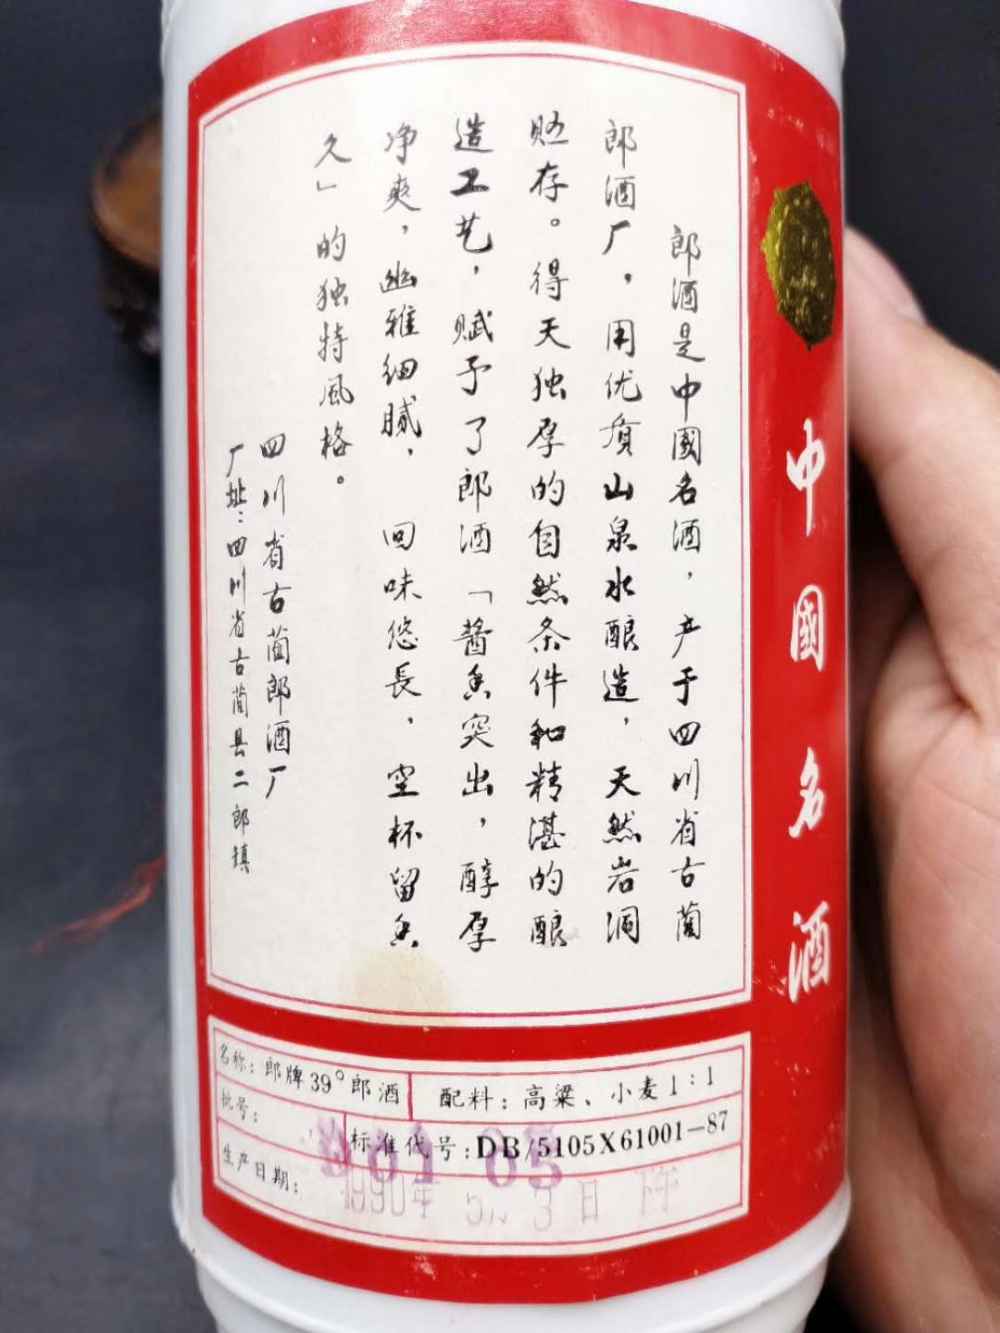 中國名酒
郎酒是中國名酒，产于四川省古蔺
郎酒厂，用优质山泉水酿造，天然岩洞
贮存。得天独厚的自然条件和精湛的酿
造工艺，赋予了郎酒「酱香突出，醇厚
净爽，幽雅细腻，回味悠長，空杯留香
久」的独特風格。
四川省古蔺郎酒厂
厂址：四川省古蔺县二郎镇
名称：郎牌39°郎酒
配料：高粱、小麦1:1
批号：
标准代号：DB/5105X61001-87
生产日期：
1990年 5月 3日